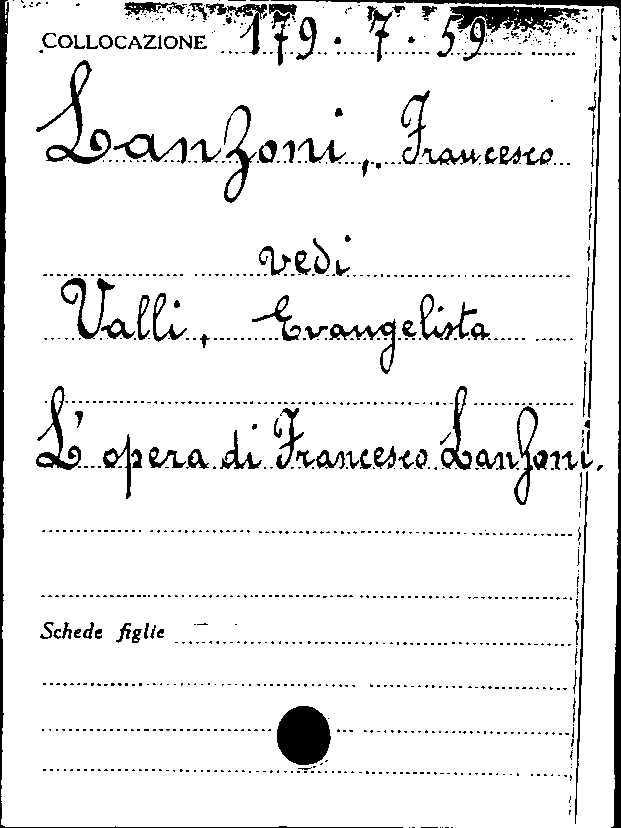 COLLOCAZIONE 179.7.59
Lanzoni, Francesco
vedi
Valli, Evangelista
L'opera di Francesco Lanzoni.
Schede figlie